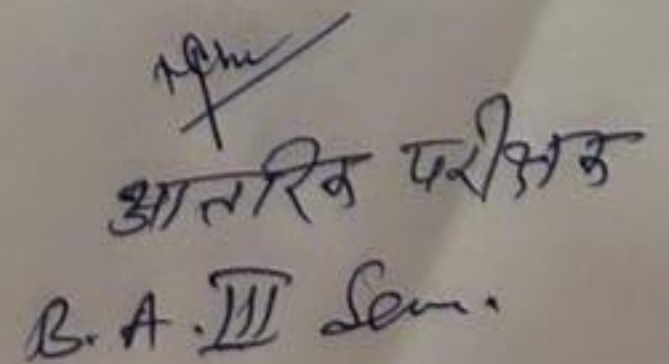 आतरिक परीक्षक
B. A. III Sem.